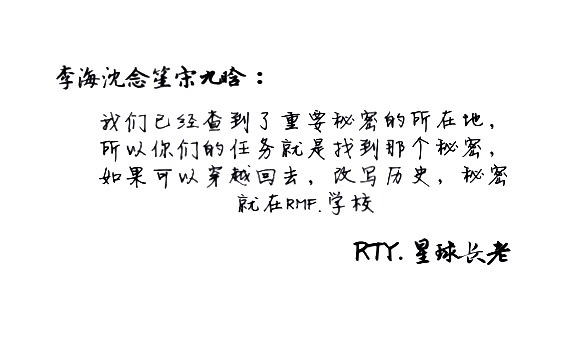 李海沈念笙宋九晗：
我们已经查到了重要秘密的所在地，
所以你们的任务就是找到那个秘密，
如果可以穿越回去，改写历史，秘密
就在RMF.学校
RTY.星球长老